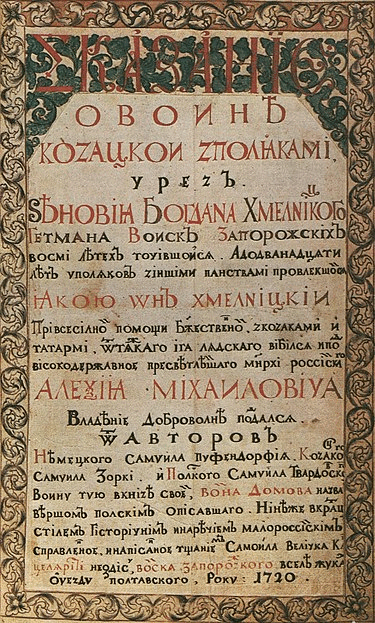 СКАЗАНІЕ
О ВОИНѢ
КОZАЦКОИ ZПОЛѦКАМИ,
УРЕZЪ
ЅѢНОВІѦ БОГДАНА ХМЕЛНИЦКОГО
ГЕТМАНА ВОИСКЪ ЗАПОРОЖСКИХЪ
ВОСМИ ЛѢТЕХЪ ТОЧІВШОЙСЯ. АДОДВАНАДЦЯТИ
ЛѢТЪ УПОЛЯКОВЪ ZІНШИМИ ПАНСТВАМИ ПРОВЛЕКШОЙСЯ
ѦКОЮ ѠНЪ ХМЕЛНІЦКІЙ
При всесилно помощи Бжественно, zкоzаками и
татарми, Ѿтяжкаго іга лядскаго вібілся ипо
високодержавное пресвѣтлѣйшого мнрхи россійско
АЛЕѮІѦ МІХАИЛОВІЧА
Владѣніе Доброволнѣ поддался.
Ѿ АВТОРОВЪ
Нѣмецкого Самуила Пуфендорфія, Коzацко
Самуила Зорки. и Полского Самуила Твардовско
Воину тую вкнізѣ своей, Воина Домова назва
вѣршомъ полскимъ описавшаго. Нінѣже вкрат
стілемъ Гісторічнимъ инарѣчіемъ малороссійскимъ
справленое, инаписаное тщаніемъ Самоила Велічка Кан
целяріти неодіс воска Запорозкого вселѣ жука
Оуезду полтавского, Року: 1720.